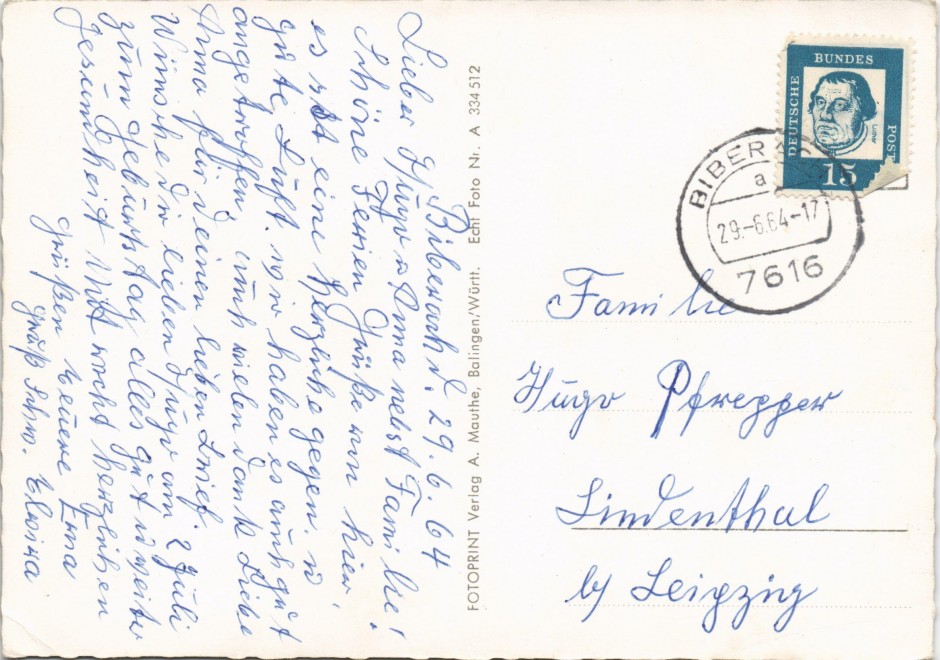 Biberach d. 29.6.64
Lieber Hugo u Anna nebst Familie!
Schöne Ferien Grüße von hier,
es ist eine herzliche gegen. u
gute Luft. wir haben es auch gut
angetroffen, auch vielen dank Liebe
Anna für deinen lieben Brief.
Wünsche dir lieben Hugo am 2 Juli
zum geburtstag alles gut u weiter
gesundheit Mit recht herzlichen
grüßen Eueure Erna
Gruß Schw. Elvira
FOTOPRINT Verlag A. Mauthe, Balingen/Württ. Echt Foto Nr. A 334 512
DEUTSCHE
BUNDES
POST
Luther
15
BIBERACH
a
29.-6.64-17
7616
Familie
Hugo Pfrepper
Lindenthal
b/ Leipzig